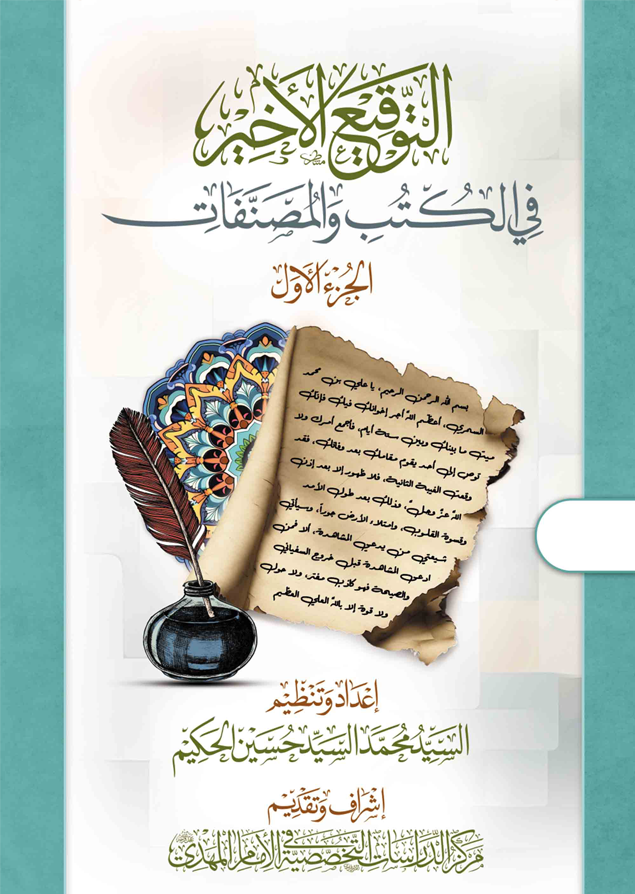 التَّوْقِيعُ الأَخِيرُ
فِي الكُتُبِ وَالمُصَنَّفَاتِ
الجُزْءُ الأَوَّلُ
بسم الله الرحمن الرحيم، يا علي بن محمد
السمري، أعظم الله أجر إخوانك فيك فإنك
ميت ما بينك وبين ستة أيام، فاجمع أمرك ولا
توص إلى أحد يقوم مقامك بعد وفاتك، فقد
وقعت الغيبة التالية، فلا ظهور إلا بعد إذن
الله عزَّ وجلَّ، وذلك بعد طول الأمد
وقسوة القلوب، وامتلاء الأرض جوراً، وسيأتي
شيعتي من يدعي المشاهدة، ألا فمن
ادعى المشاهدة قبل خروج السفياني
والصيحة فهو كاذب مفتر، ولا حول
ولا قوة إلا بالله العلي العظيم
إعْدَاد وَتَنْظِيم
السَّيِّدُ مُحَمَّد السَّيِّد حُسَيْن الحَكِيم
إشراف وتقديم
مركز الدراسات التخصصية في الإمام المهدي